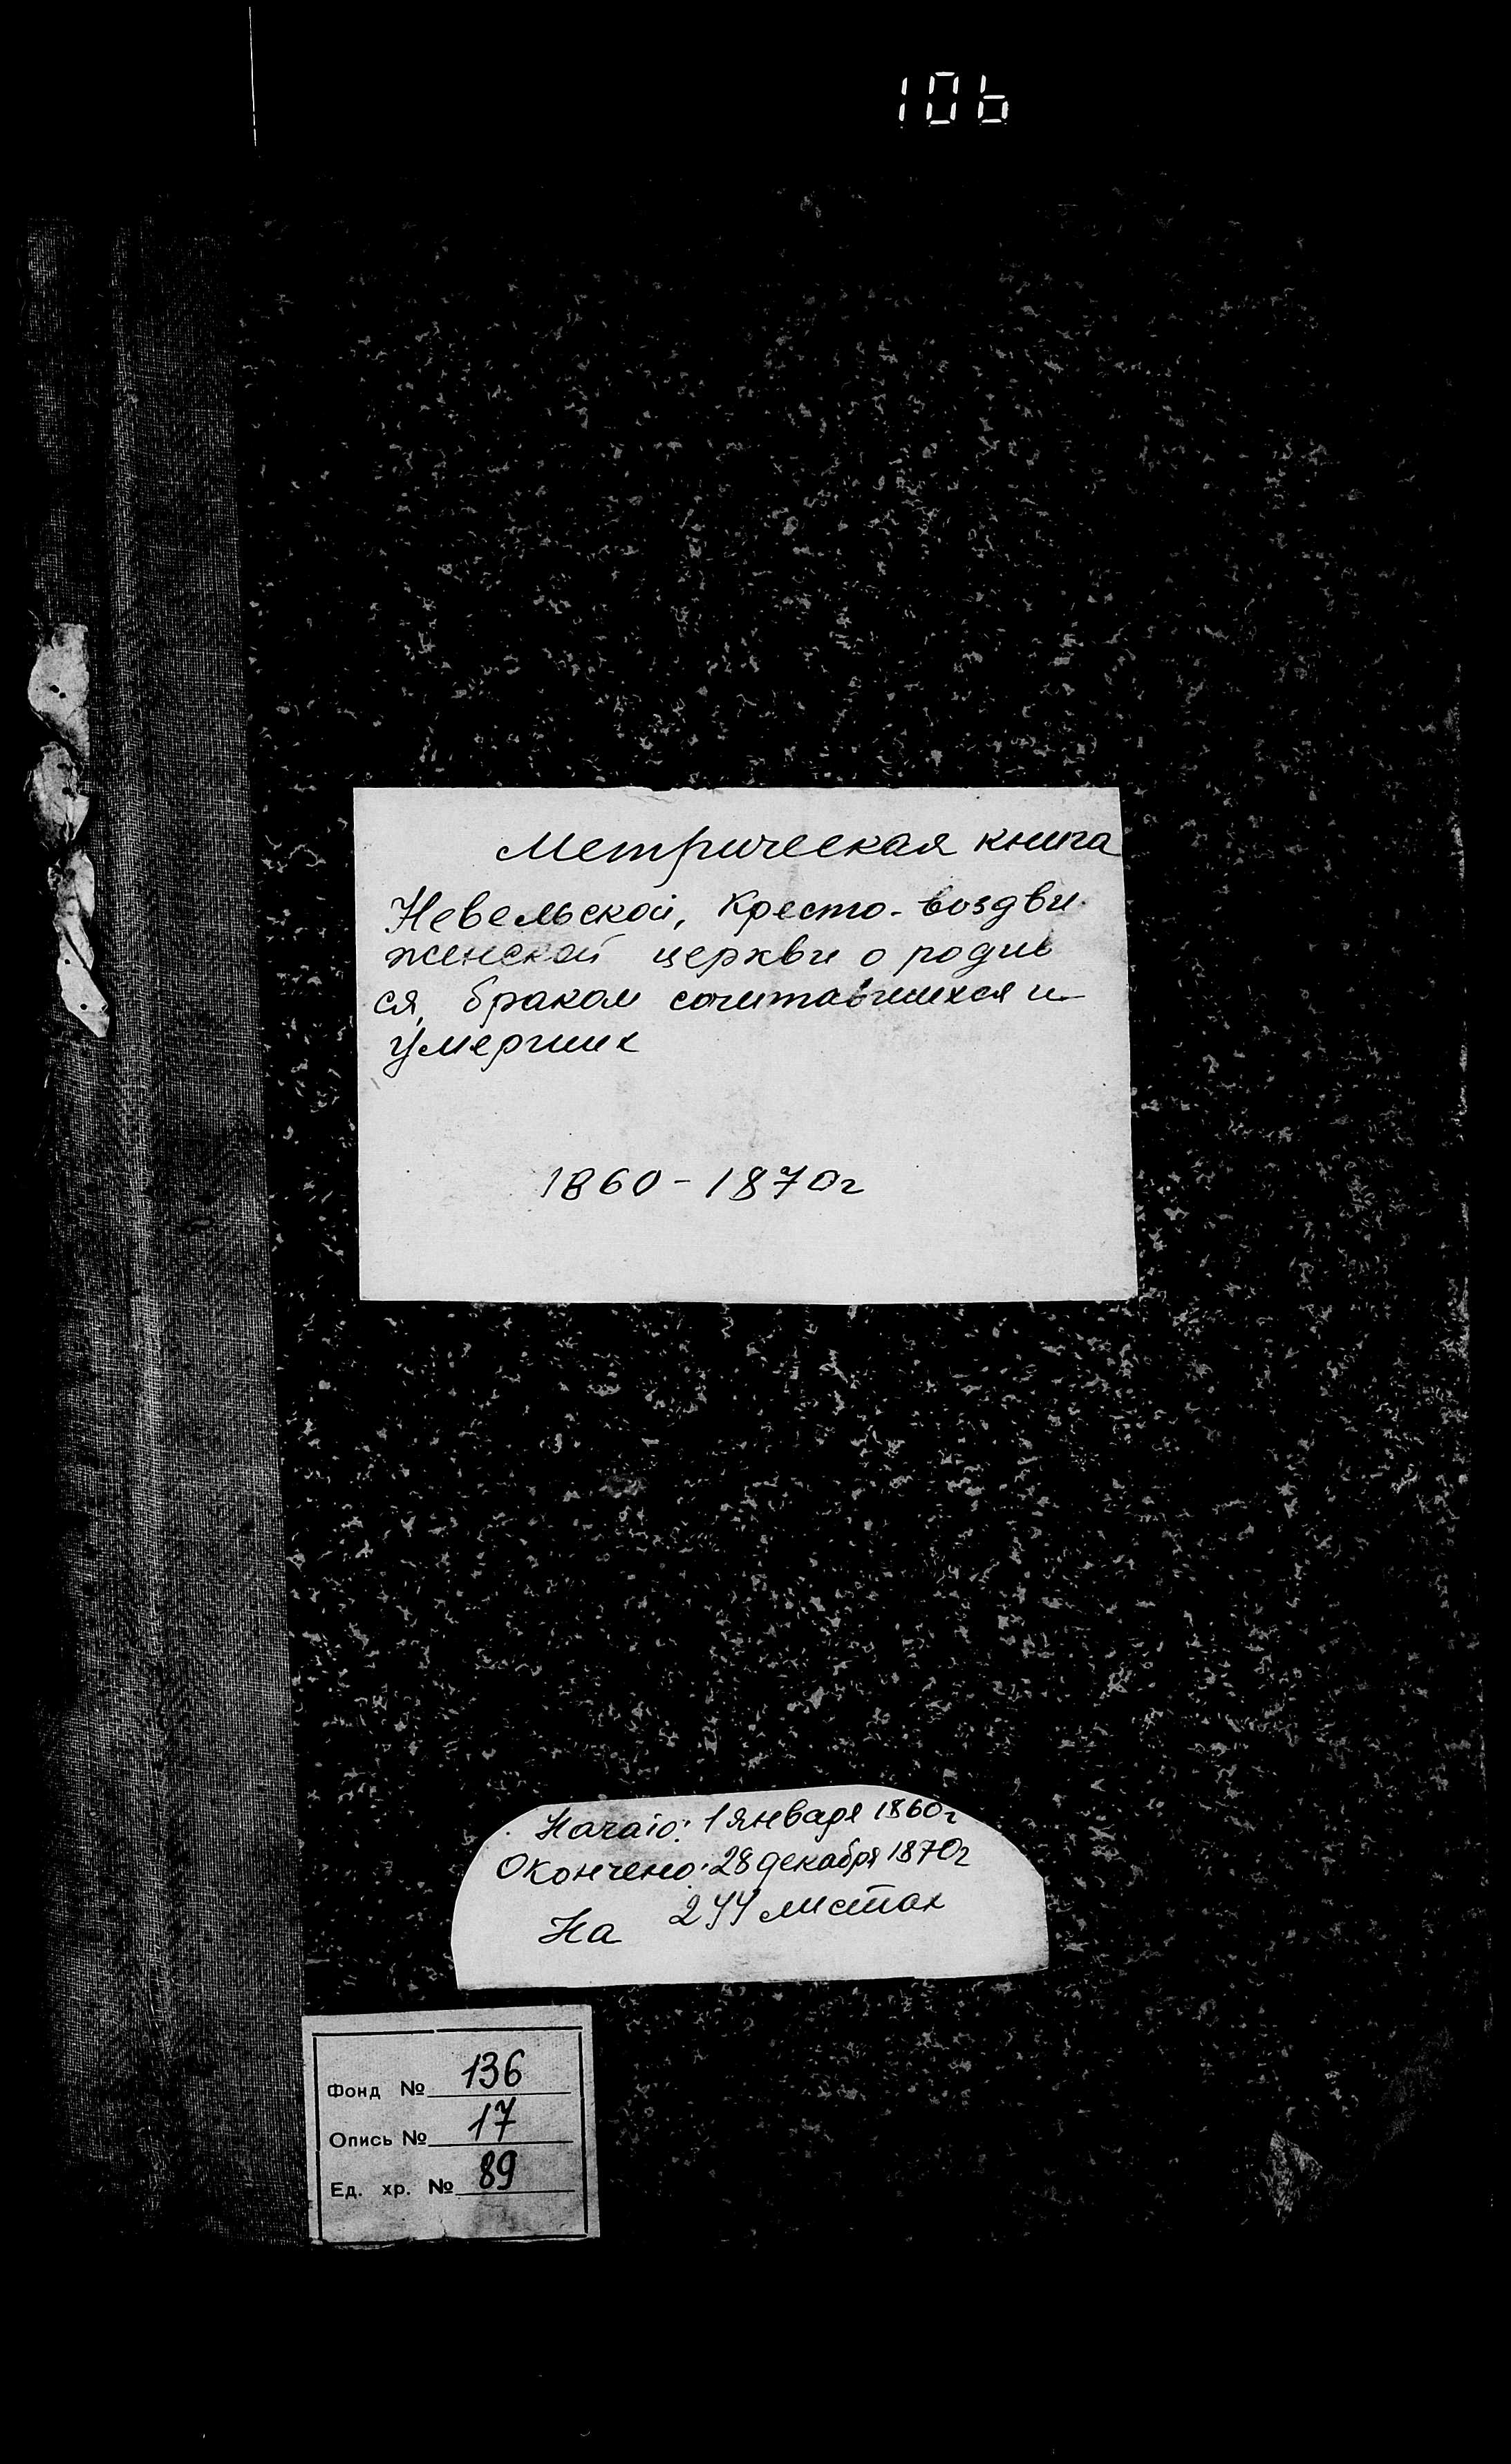 106
Метрическая книга
Невельской, Кресто-воздви
женской церкви о родив
ся, браком сочитавшихся и
умерших
1860-1870г
Начато: 1 января 1860г
Окончено: 28 декабря 1870г
На 244 листах
Фонд № 136
Опись № 17
Ед. хр. № 89